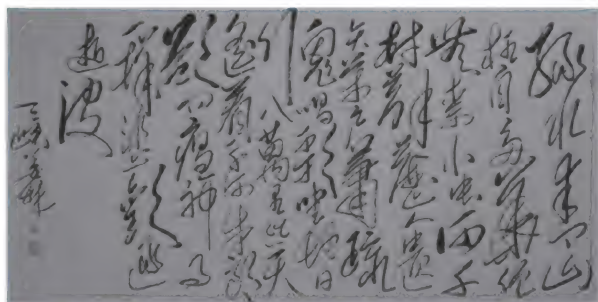 绿水青山
枉自多华佗
無奈小虫何千
村薜荔人遗
矢万户萧疏
鬼唱歌坐地日
行八萬里巡天
遥看一千河牛郎
欲问瘟神事
一样悲欢逐
逝波